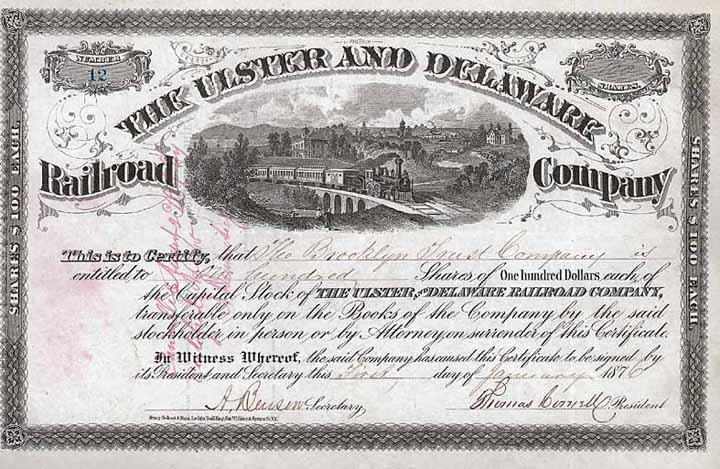 NUMBER
12
SHARES
THE ULSTER AND DELAWARE
Railroad Company
SHARES $100 EACH
SHARES $100 EACH
This is to Certify, that The Brooklyn Trust Company is
entitled to hundred Shares of One hundred Dollars, each, of
the Capital Stock of THE ULSTER, AND DELAWARE RAILROAD COMPANY,
transferable only on the Books of the Company by the said
stockholder in person or by Attorney on surrender of this Certificate.
In Witness Whereof, the said Company has caused this Certificate to be signed by
its President and Secretary this First day of January 1876
Secretary
Thomas Cornell President